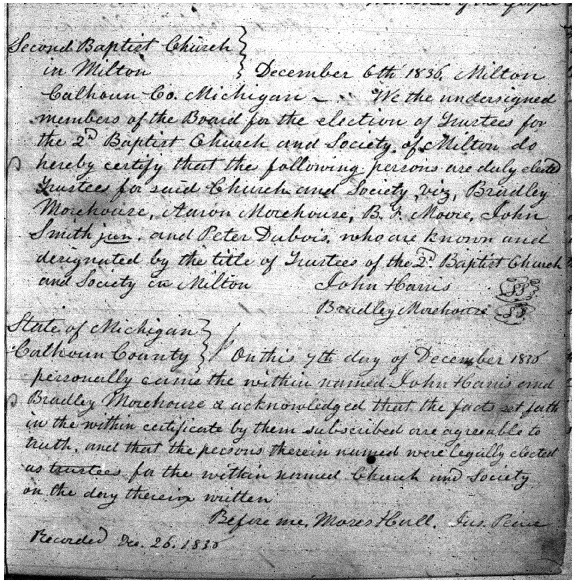 Second Baptist Church
in Milton } December 6th 1836, Milton
Calhoun Co. Michigan - We the undersigned
members of the Board for the election of Trustees for
the 2d Baptist Church and Society of Milton do
hereby certify that the following persons are duly elected
Trustees for said Church and Society, viz, Bradley
Morehouse, Aaron Morehouse, B. F. Moore, John
Smith jun. and Peter Dubois, who are known and
designated by the title of Trustees of the 2d Baptist Church
and Society in Milton John Harris LS
Bradley Morehouse LS
State of Michigan
Calhoun County } On this 7th day of December 1836
personally came the within named John Harris and
Bradley Morehouse & acknowledged that the facts set forth
in the within certificate by them subscribed are agreeable to
truth, and that the persons therein named were legally elected
as trustees for the within named Church and Society
on the day therein written
Before me, Moses Hall. Jus. Peace
Recorded Dec. 26. 1836